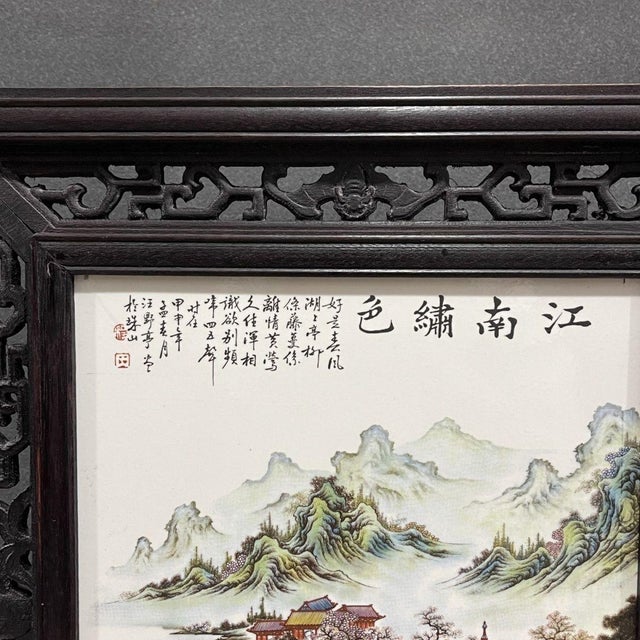 江南繡色
好是春風
湖上亭柳
條藤蔓係
離情黃鶯
久住渾相
識欲別頻
啼四五聲
時在
甲申年
孟春月
汪野亭
於珠山